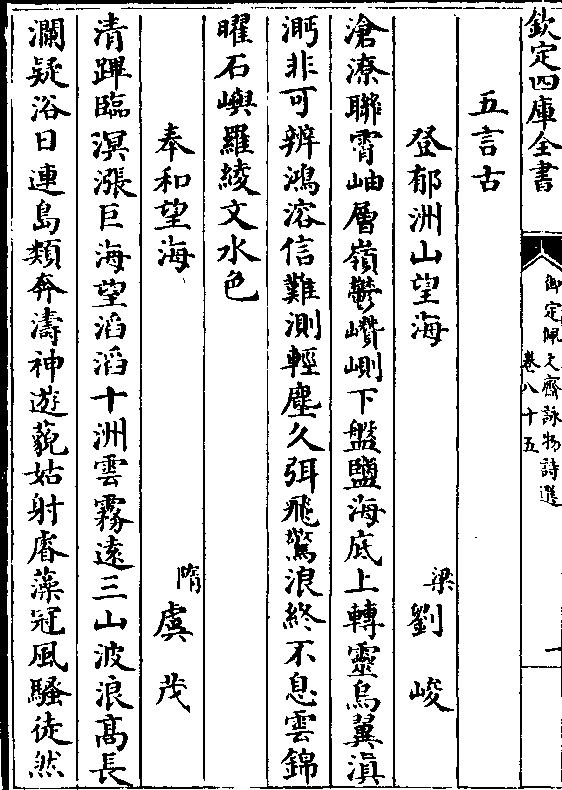 欽定四庫全書
御定佩文齋詠物詩選
卷八十五
一
五言古
登郁洲山望海
梁劉峻
滄潦聯霄岫層嶺鬱巑崱下盤鹽海底上轉靈烏翼滇
㴐非可辨鴻溶信難測輕塵久弭飛驚浪終不息雲錦
曜石嶼羅綾文水色
奉和望海
隋虞茂
清蹕臨溟漲巨海望滔滔十洲雲霧遠三山波浪髙長
瀾疑浴日連島類奔濤神遊藐姑射睿藻冠風騷徒然